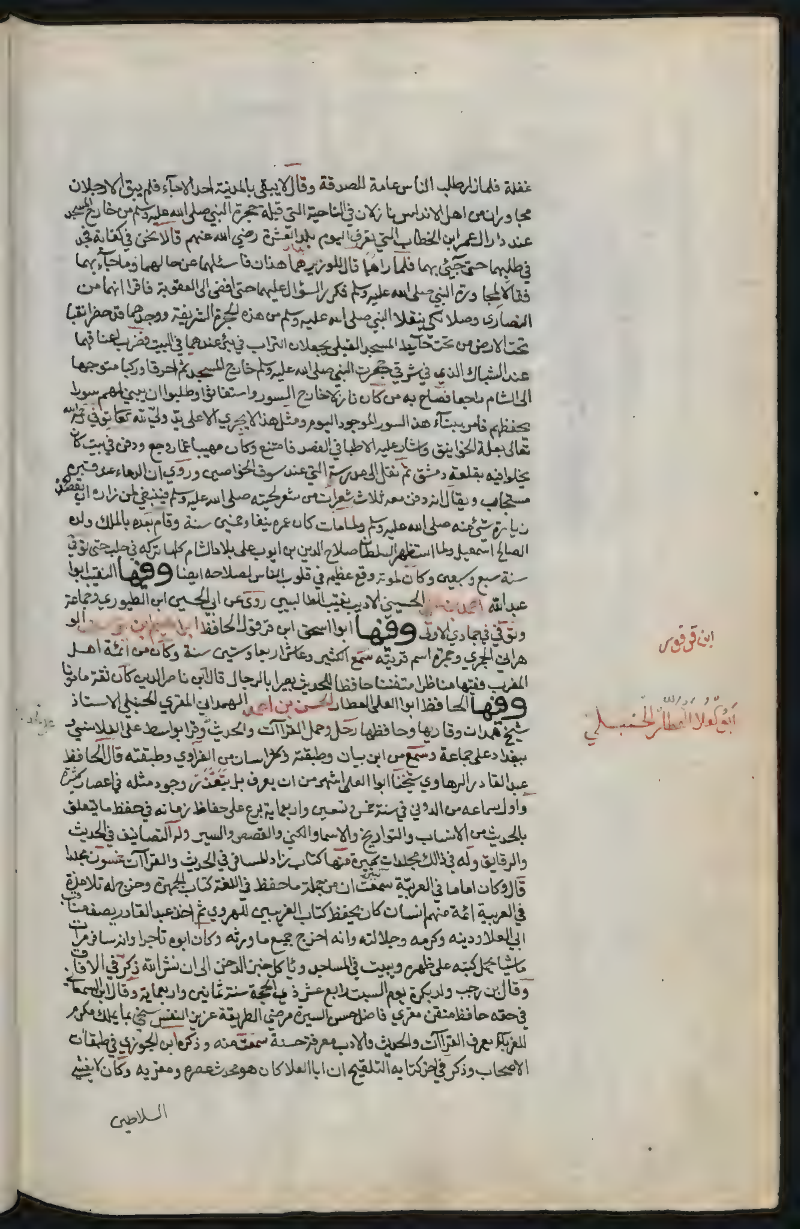 غفلة فلما زار طلب الناس عامة للصدقة وقال لا يبقى بالمدينة احد الا جآء فلم يبق الا رجلان
مجاوران من اهل الاندلس نازلان في الناحية التي قبلة حجرة النبي صلى الله عليه وسلم من خارج المسجد
عند دار ال عمر ابن الخطاب التي تعرف اليوم بدار العشرة رضي الله عنهم قالا نحن في كفاية فجد
في طلبهما حتى جيئ بهما فلما راهما قال للوزير هما هذان فاسئلهما عن حالهما وما جآء بهما
فقالا لمجاورة النبي صلى الله عليه وسلم فكرر السؤال عليهما حتى افضى الى العقوبة فاقرا انهما من
النصارى وصلا لكي ينقلا النبي صلى الله عليه وسلم من هذه الحجرة الشريفة ووجدهما قد حفرا نقبا
تحت الارض من تحت حائط المسجد القبلي يجعلان التراب في بئر عندهما في البيت فضرب اعناقهما
عند الشباك الذي في شرقي حجرت النبي صلى الله عليه وسلم خارج المسجد ثم احرقا وركبا متوجها
الى الشام راجعا فصاح به من كان نازلا خارج السور واستغاثوا وطلبوا ان يبني لهم سورا
يحفظهم فامر ببنآء هذا السور الموجود اليوم ومثل هذا لا يجري الا على يد ولي لله تعالى توفي رحمه الله
تعالى بعلة الخوانيق واشار عليه الاطبا في الفصد فامتنع وكان مهيبا فما روجع ودفن في بيت كان
يخلوا فيه بقلعة دمشق ثم نقل الى مدرسته التي عند سوق الخواصين وروي ان الدعاء عند قبره
مستجاب ويقال انه دفن معه ثلاث شعرات من شعر لحيته صلى الله عليه وسلم فينبغي لمن زاره ان يقصد
زيارة شئ منه صلى الله عليه وسلم ولما مات كان عمره نيفا وخمسين سنة وقام بعده بالملك ولده
الصالح اسمعيل ولما استظهر السلطان صلاح الدين بن ايوب على بلاد الشام كلها تركه في حلب حتى توفي
سنة سبع وسبعين وكان لموته وقع عظيم في قلوب الناس لصلاحه ايضا وفيها النقيب ابوا
عبد الله الحسيني الاديب نقيب الطالبيين روى عن ابي الحسين ابن الطيوري وجماعة
وتوفي في جمادي الاولى وفيها ابوا اسحق ابن قرقول الحافظ ابراهيم بن يوسف الو
هراني الحمزي وحمزة اسم قريته سمع الكثير وعاش اربعا وستين سنة وكان من ائمة اهل
المغرب فقيها مناظرا متفننا حافظا للحديث بصيرا بالرجال قال ابن ناصر الدين كان ثقة مامونا
وفيها الحافظ ابوا العلى العطار الحسن بن احمد الهمداني المقري الحنبلي الاستاذ
شيخ همدان وقاريها وحافظها رحل وحمل القراآت والحديث وقرا بواسط على القلانسي و
ببغداد على جماعة وسمع من ابن بيان وطبقته وبخراسان من الفراوي وطبقته قال الحافظ
عبد القادر الرهاوي شيخنا ابوا العلى اشهر من ان يعرف بل يتعذر وجود مثله في اعصار كثيرة
واول سماعه من الدوني في سنة خمس وتسعين واربعماية برع على حفاظ زمانه في حفظ ما يتعلق
بالحديث من الانساب والتواريخ والاسما والكنى والقصص والسير وله التصانيف في الحديث
والرقايق وله في ذالك مجلدات كبيرة منها كتاب زاد المسافر في الحديث والقراآت خمسون مجلدا
قال وكان اماما في العربية سمعت ان من جملة ما حفظ في اللغة كتاب الجمهرة وخرج له تلامذة
في العربية ائمة منهم انسان كان يحفظ كتاب الغريبين للهروي ثم اخذ عبد القادر يصف مناقب
ابي العلا ودينه وكرمه وجلالته وانه اخرج جميع ما ورثه وكان ابوه تاجرا وانه سافر مرات
ماشيا يحمل كتبه على ظهره ويبيت في المساجد وياكل خبز الدخن الى ان نشر الله ذكره في الافاق
وقال بن رجب ولد بكرة يوم السبت رابع عشر ذي الحجة سنة ثمانين واربعماية وقال ابن السمعاني
في حقه حافظ متقن مقري فاضل حسن السيرة مرضي الطريقة عزيز النفس سخي بما يملك مكرم
للغربآء يعرف القراآت والحديث والادب معرفة حسنة سمعت منه وذكره ابن الجوزي في طبقات
الاصحاب وذكر في اخر كتابه التلقيح ان ابا العلا كان هو محدث عصره ومقريه وكان لا يغشى
السلاطين
ابن قرقوس
ابو العلا العطار الحنبلي